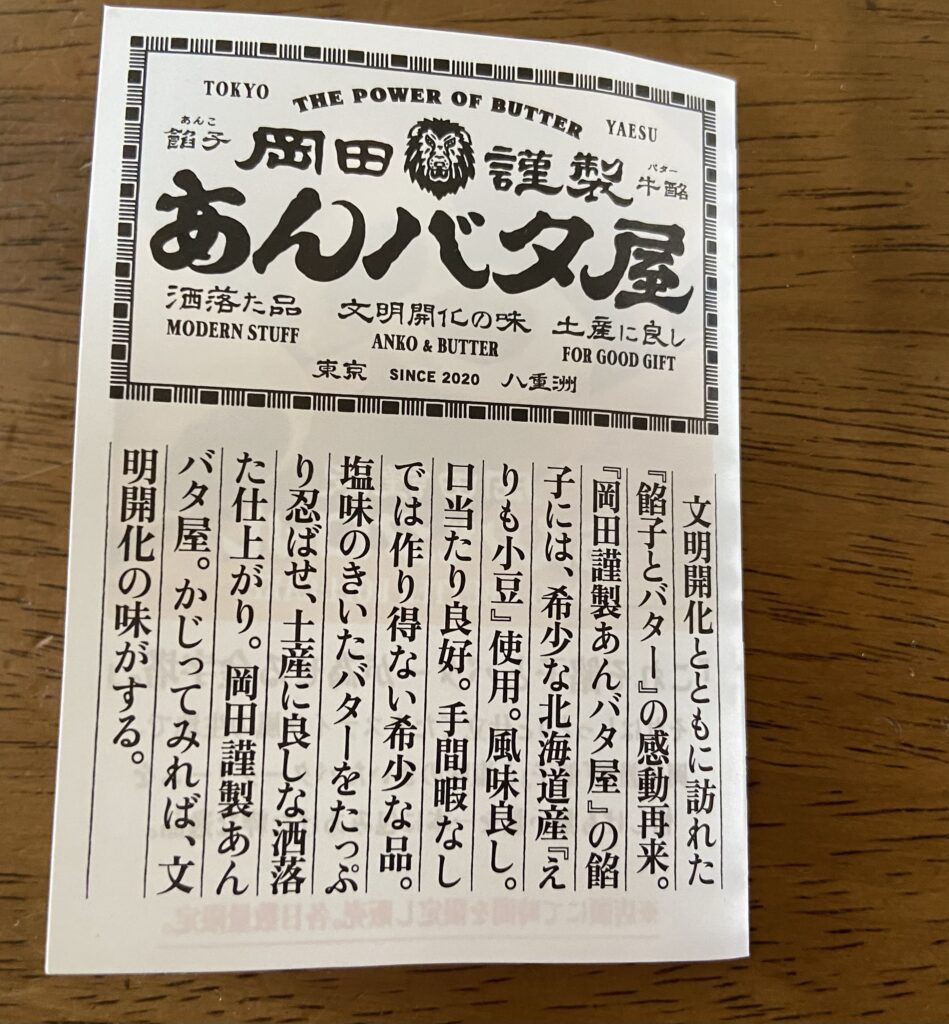 TOKYO
THE POWER OF BUTTER
YAESU
あんこ
餡子
岡田
謹製
バター
牛酪
あんバタ屋
洒落た品
文明開化の味
土産に良し
MODERN STUFF
ANKO & BUTTER
FOR GOOD GIFT
東京
SINCE 2020
八重洲
文明開化とともに訪れた
『餡子とバター』の感動再来。
『岡田謹製あんバタ屋』の餡
子には、希少な北海道産『え
りも小豆』使用。風味良し。
口当たり良好。手間暇なし
では作り得ない希少な品。
塩味のきいたバターをたっぷ
り忍ばせ、土産に良しな洒落
た仕上がり。岡田謹製あん
バタ屋。かじってみれば、文
明開化の味がする。
※店頭にて時間を限定し販売。各日数量限定。